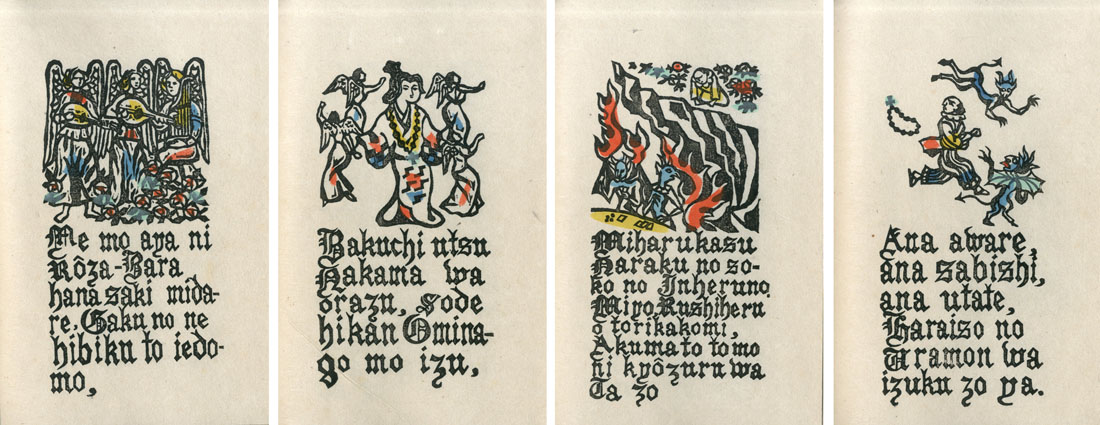 Me mo aya ni
Rôza-Bara
hana saki mida-
re, Gaku no ne
hibiku to iedo-
mo,
Bakuchi utsu
Nakama wa
orazu, Sode
hikan Omina-
go mo izu,
Miharukasu
Naraku no so-
ko no Inheruno,
Miyo, Rushiheru
o torikakomi,
Akuma to tomo
ni kyôzuru wa
Ta zo
Ana aware,
ana sabishi,
ana utate,
Haraiso no
Uramon wa
izuku zo ya.